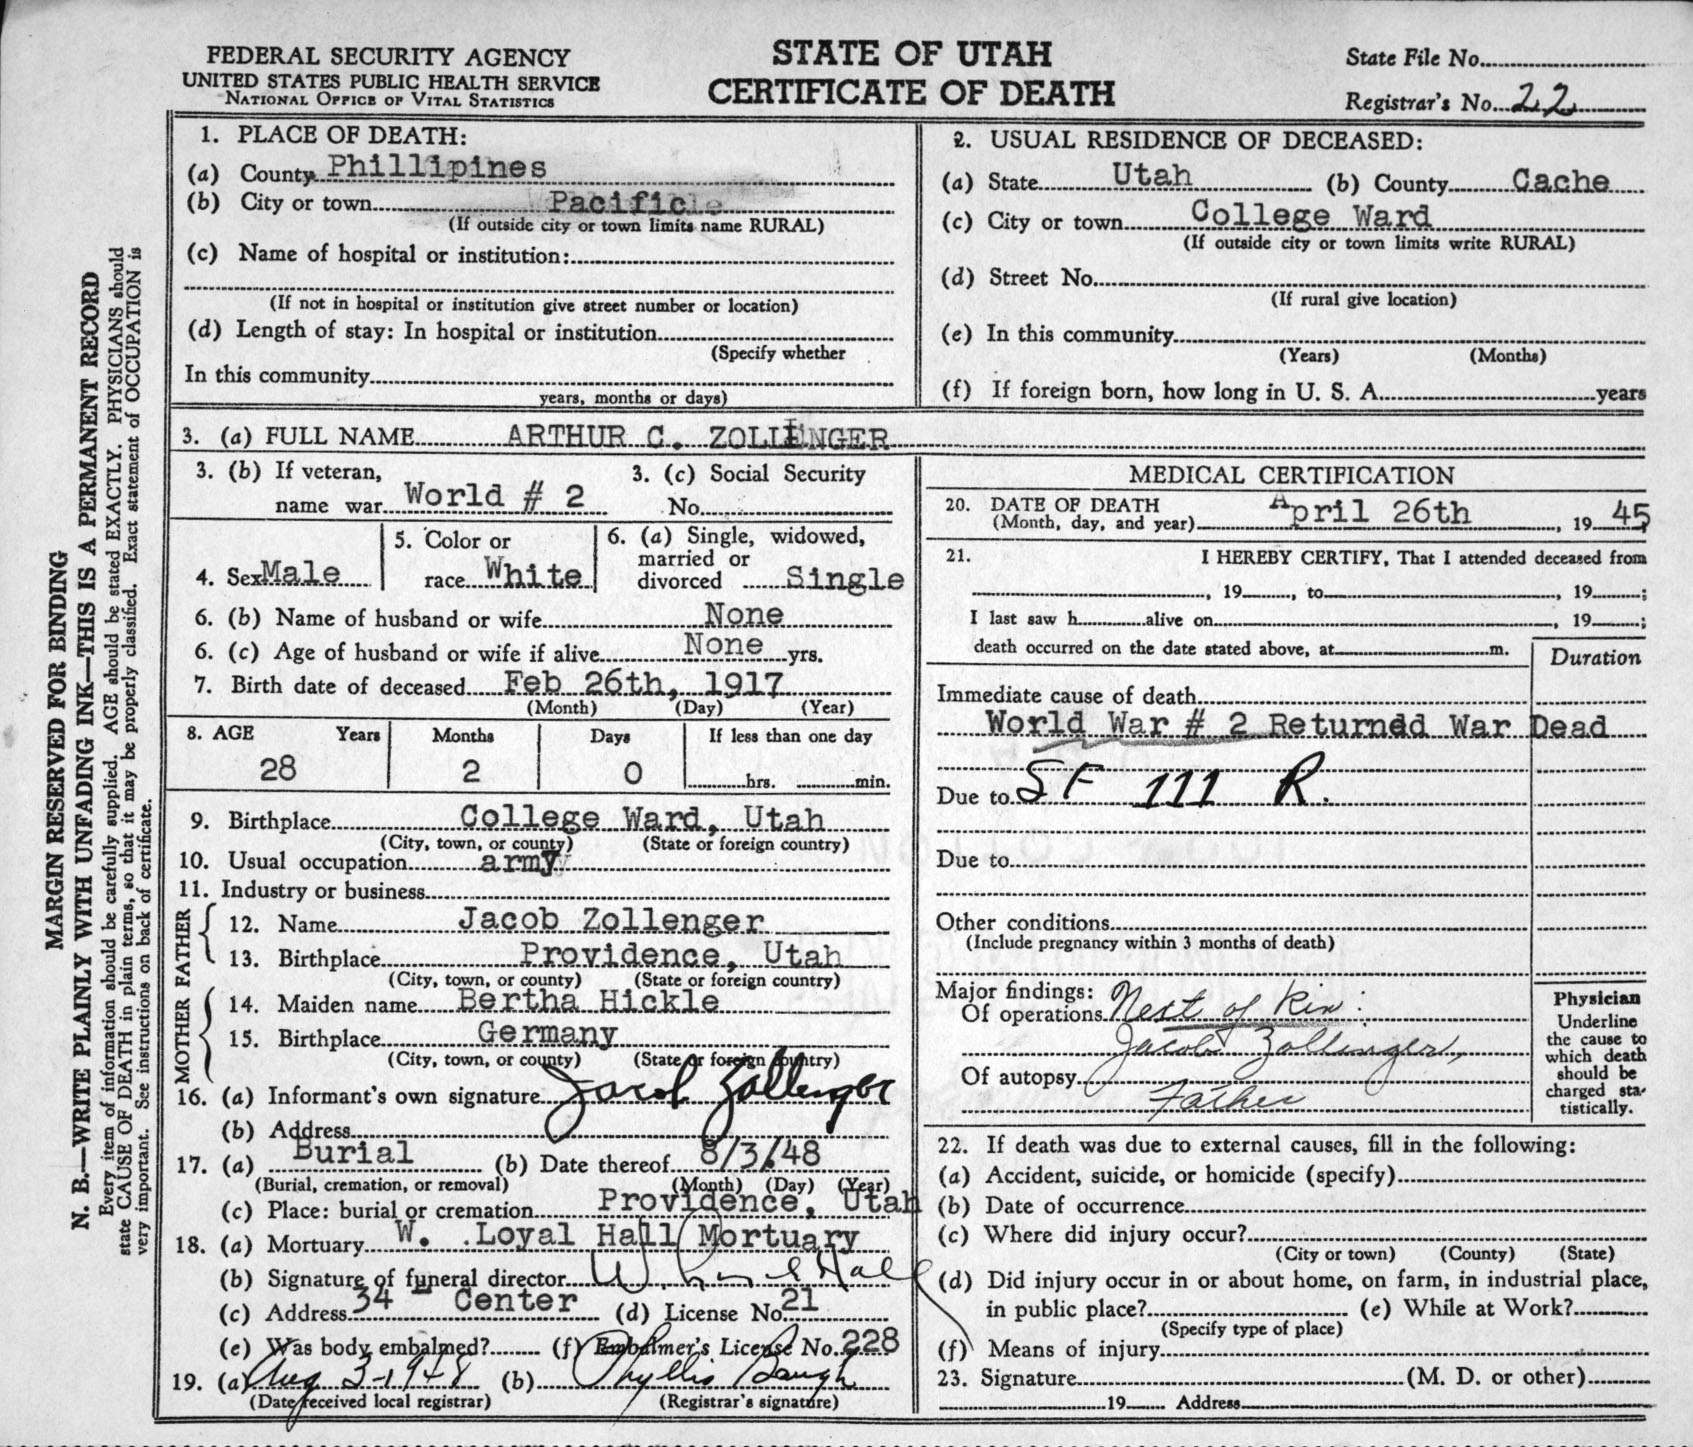 FEDERAL SECURITY AGENCY
UNITED STATES PUBLIC HEALTH SERVICE
NATIONAL OFFICE OF VITAL STATISTICS
STATE OF UTAH
CERTIFICATE OF DEATH
State File No.
Registrar's No. 22
MARGIN RESERVED FOR BINDING
N. B.—WRITE PLAINLY WITH UNFADING INK—THIS IS A PERMANENT RECORD
Every item of information should be carefully supplied. AGE should be stated EXACTLY. PHYSICIANS should
state CAUSE OF DEATH in plain terms, so that it may be properly classified. Exact statement of OCCUPATION is
very important. See instructions on back of certificate.
1. PLACE OF DEATH:
(a) County Phillipines
(b) City or town Pacific
(If outside city or town limits name RURAL)
(c) Name of hospital or institution:
(If not in hospital or institution give street number or location)
(d) Length of stay: In hospital or institution
(Specify whether
In this community
years, months or days)
2. USUAL RESIDENCE OF DECEASED:
(a) State Utah (b) County Cache
(c) City or town College Ward
(If outside city or town limits write RURAL)
(d) Street No.
(If rural give location)
(e) In this community
(Years) (Months)
(f) If foreign born, how long in U. S. A. years
3. (a) FULL NAME ARTHUR C. ZOLLINGER
3. (b) If veteran,
name war World # 2
3. (c) Social Security
No.
4. Sex Male
5. Color or
race White
6. (a) Single, widowed,
married or
divorced Single
6. (b) Name of husband or wife None
6. (c) Age of husband or wife if alive None yrs.
7. Birth date of deceased Feb 26th, 1917
(Month) (Day) (Year)
8. AGE Years Months Days If less than one day
28 2 0 hrs. min.
9. Birthplace College Ward, Utah
(City, town, or county) (State or foreign country)
10. Usual occupation army
11. Industry or business
FATHER
12. Name Jacob Zollenger
13. Birthplace Providence, Utah
(City, town, or county) (State or foreign country)
MOTHER
14. Maiden name Bertha Hickle
15. Birthplace Germany
(City, town, or county) (State or foreign country)
16. (a) Informant's own signature Jacob Zollinger
(b) Address
17. (a) Burial (b) Date thereof 8/3/48
(Burial, cremation, or removal) (Month) (Day) (Year)
(c) Place: burial or cremation Providence, Utah
18. (a) Mortuary W. Loyal Hall Mortuary
(b) Signature of funeral director W Loyal Hall
(c) Address 34 - Center (d) License No. 21
(e) Was body embalmed? (f) Embalmer's License No. 228
19. (a) Aug 3-1948 (b) Phyllis Baugh
(Date received local registrar) (Registrar's signature)
MEDICAL CERTIFICATION
20. DATE OF DEATH
(Month, day, and year) April 26th, 1945
21. I HEREBY CERTIFY, That I attended deceased from
, 19 , to , 19 ;
I last saw h alive on , 19 ;
death occurred on the date stated above, at m.
Duration
Immediate cause of death
World War # 2 Returned War Dead
Due to SF 111 R.
Due to
Other conditions
(Include pregnancy within 3 months of death)
Major findings:
Of operations Next of Kin:
Jacob Zollinger,
Of autopsy
Father
Physician
Underline
the cause to
which death
should be
charged sta-
tistically.
22. If death was due to external causes, fill in the following:
(a) Accident, suicide, or homicide (specify)
(b) Date of occurrence
(c) Where did injury occur?
(City or town) (County) (State)
(d) Did injury occur in or about home, on farm, in industrial place,
in public place? (e) While at Work?
(Specify type of place)
(f) Means of injury
23. Signature (M. D. or other)
19 Address